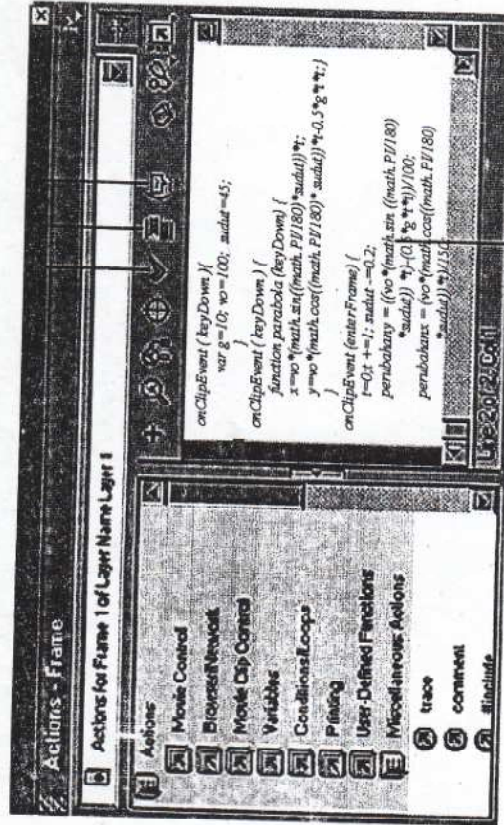 Actions - Frame
Actions for Frame 1 of Layer Name Layer 1
Actions
Movie Control
Browser/Network
Movie Clip Control
Variables
Conditions/Loops
Printing
User-Defined Functions
Miscellaneous Actions
trace
comment
#include
onClipEvent ( keyDown ){
var g=10; vo=100; sudut=45;
}
onClipEvent ( keyDown ) {
function parabola (keyDown) {
x=vo*(math.sin((math.PI/180)*sudut))*t;
y=vo*(math.cos((math.PI/180)* sudut))*t-0.5*g*t*t;}
}
onClipEvent (enterFrame) {
t=0;t +=1; sudut -=0.2;
perubahany = ((vo*(math.sin ((math.PI/180)
*sudut)) *t)-(0.5*g*t*t))/100;
perubahanx = (vo*(math.cos((math.PI/180)
*sudut))*t)/150;
Line 2 of 2, Col 1